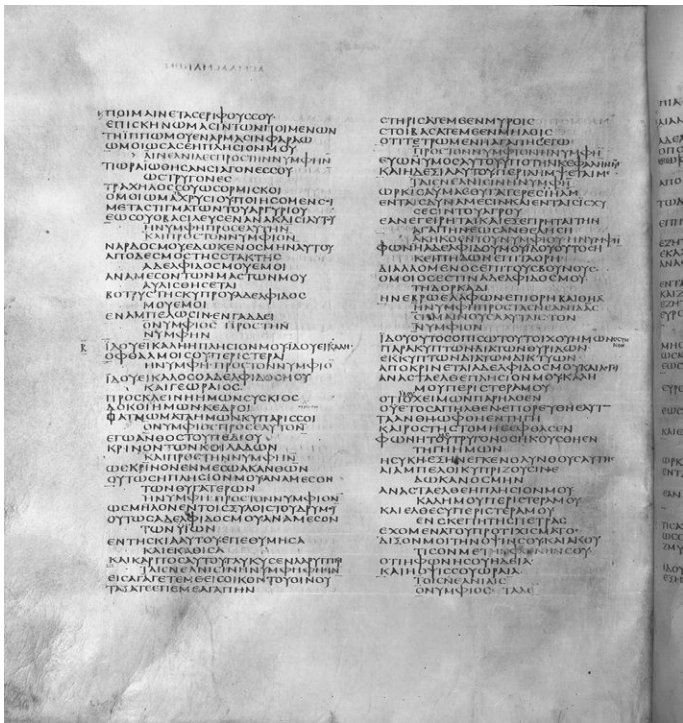 ΠΟΙΜΑΙΝΕΤΑϹΕΡΙΦΟΥϹϹΟΥ·
ΕΠΙϹΚΗΝΩΜΑϹΙΝΤΩΝΠΟΙΜΕΝΩΝ
ΤΗΙΠΠΩΜΟΥΕΝΑΡΜΑϹΙΝΦΑΡΑΩ
ΩΜΟΙΩϹΑϹΕΗΠΛΗϹΙΟΝΜΟΥ
ΑΙΝΕΑΝΙΔΕϹΠΡΟϹΤΗΝΝΥΜΦΗΝ
ΤΙΩΡΑΙΩΘΗϹΑΝϹΙΑΓΟΝΕϹϹΟΥ
ΩϹΤΡΥΓΟΝΕϹ
ΤΡΑΧΗΛΟϹϹΟΥΩϹΟΡΜΙϹΚΟΙ
ΟΜΟΙΩΜΑΧΡΥϹΙΟΥΠΟΙΗϹΟΜΕΝϹΙ
ΜΕΤΑϹΤΙΓΜΑΤΩΝΤΟΥΑΡΓΥΡΙΟΥ
ΕΩϹΟΥΟΒΑϹΙΛΕΥϹΕΝΑΝΑΚΛΙϹΙΑΥΤΥ
ΗΝΥΜΦΗΠΡΟϹΕΑΥΤΗΝ
ΚΑΙΠΡΟϹΤΟΝΝΥΜΦΙΟΝ
ΝΑΡΔΟϹΜΟΥΕΔΩΚΕΝΟϹΜΗΝΑΥΤΟΥ
ΑΠΟΔΕϹΜΟϹΤΗϹϹΤΑΚΤΗϹ
ΑΔΕΛΦΙΔΟϹΜΟΥΕΜΟΙ
ΑΝΑΜΕϹΟΝΤΩΝΜΑϹΤΩΝΜΟΥ
ΑΥΛΙϹΘΗϹΕΤΑΙ
ΒΟΤΡΥϹΤΗϹΚΥΠΡΟΥΑΔΕΛΦΙΔΟϹ
ΜΟΥΕΜΟΙ
ΕΝΑΜΠΕΛΩϹΙΝΕΝΓΑΔΔΕΙ
ΟΝΥΜΦΙΟϹΠΡΟϹΤΗΝ
ΝΥΜΦΗΝ
ΪΔΟΥΕΙΚΑΛΗΗΠΛΗϹΙΟΝΜΟΥΪΔΟΥΕΙΚΑΛΗ·
ΟΦΘΑΛΜΟΙϹΟΥΠΕΡΙϹΤΕΡΑΙ
ΗΝΥΜΦΗΠΡΟϹΤΟΝΝΥΜΦΙΟ
ΪΔΟΥΕΙΚΑΛΟϹΟΑΔΕΛΦΙΔΟϹΜΟΥ
ΚΑΙΓΕΩΡΑΙΟϹ
ΠΡΟϹΚΛΕΙΝΗΗΜΩΝϹΥϹΚΙΟϹ
ΔΟΚΟΙΗΜΩΝΚΕΔΡΟΙ
ΦΑΤΜΩΜΑΤΑΗΜΩΝΚΥΠΑΡΙϹϹΟΙ
ΟΝΥΜΦΙΟϹΠΡΟϹΕΑΥΤΟΝ
ΕΓΩΑΝΘΟϹΤΟΥΠΕΔΙΟΥ
ΚΡΙΝΟΝΤΩΝΚΟΙΛΑΔΩΝ
ΚΑΙΠΡΟϹΤΗΝΝΥΜΦΗΝ
ΩϹΚΡΙΝΟΝΕΝΜΕϹΩΑΚΑΝΘΩΝ
ΟΥΤΩϹΗΠΛΗϹΙΟΝΜΟΥΑΝΑΜΕϹΟΝ
ΤΩΝΘΥΓΑΤΕΡΩΝ
ΗΝΥΜΦΗΠΡΟϹΤΟΝΝΥΜΦΙΟΝ
ΩϹΜΗΛΟΝΕΝΤΟΙϹΞΥΛΟΙϹΤΟΥΔΡΥΜΥ
ΟΥΤΩϹΑΔΕΛΦΙΔΟϹΜΟΥΑΝΑΜΕϹΟΝ
ΤΩΝΥΙΩΝ
ΕΝΤΗϹΚΙΑΑΥΤΟΥΕΠΕΘΥΜΗϹΑ
ΚΑΙΕΚΑΘΙϹΑ
ΚΑΙΚΑΡΠΟϹΑΥΤΟΥΓΛΥΚΥϹΕΝΛΑΡΥΓΓΙΜ
ΤΑΙϹΝΕΑΝΙϹΙΝΗΝΥΜΦΗΦΗϹΙΝ
ΕΙϹΑΓΑΓΕΤΕΜΕΕΙϹΟΙΚΟΝΤΟΥΟΙΝΟΥ
ΤΑΞΑΤΕΕΠΕΜΕΑΓΑΠΗΝ
ϹΤΗΡΙϹΑΤΕΜΕΕΝΜΥΡΟΙϹ
ϹΤΟΙΒΑϹΑΤΕΜΕΕΝΜΗΛΟΙϹ
ΟΤΙΤΕΤΡΩΜΕΝΗΑΓΑΠΗϹΕΓΩ
ΠΡΟϹΤΟΝΝΥΜΦΙΟΝΗΝΥΜΦΗ
ΕΥΩΝΥΜΟϹΑΥΤΟΥΥΠΟΤΗΝΚΕΦΑΛΗΝΜΥ
ΚΑΙΗΔΕΞΙΑΑΥΤΟΥΠΕΡΙΛΗΜΨΕΤΑΙΜΕ·
ΤΑΙϹΝΕΑΝΙϹΙΝΗΝΥΜΦΗ
ΩΡΚΙϹΑΥΜΑϹΘΥΓΑΤΕΡΕϹΙΗΛΜ
ΕΝΤΑΙϹΔΥΝΑΜΕϹΙΝΚΑΙΕΝΤΑΙϹΙϹΧΥ
ϹΕϹΙΝΤΟΥΑΓΡΟΥ
ΕΑΝΕΓΕΙΡΗΤΑΙΚΑΙΕΞΕΓΕΙΡΗΤΑΙΤΗΝ
ΑΓΑΠΗΝΕΩϹΑΝΘΕΛΗϹΗ
ΑΚΗΚΟΕΝΤΟΥΝΥΜΦΙΟΥΗΝΥΜΦΗ
ΦΩΝΗΑΔΕΛΦΙΔΟΥΜΟΥΪΔΟΥΟΥΤΟϹΗ
ΚΕΙΠΗΔΩΝΕΠΙΤΑΟΡΗ
ΔΙΑΛΛΟΜΕΝΟϹΕΠΙΤΟΥϹΒΟΥΝΟΥϹ·
ΟΜΟΙΟϹΕϹΤΙΝΑΔΕΛΦΙΔΟϹΜΟΥ
ΤΗΔΟΡΚΑΔΙ
ΗΝΕΒΡΩΕΛΑΦΩΝΕΠΙΟΡΗΒΑΙΘΗΛ
ΗΝΥΜΦΗΠΡΟϹΤΑϹΝΕΑΝΙΔΑϹ
ϹΗΜΑΙΝΟΥϹΑΑΥΤΑΙϹΤΟΝ
ΝΥΜΦΙΟΝ
ΪΔΟΥΟΥΤΟϹΟΠΙϹΩΤΟΥΤΟΙΧΟΥΗΜΩΝ
ΠΑΡΑΚΥΠΤΩΝΔΙΑΤΩΝΘΥΡΙΔΩΝ
ΕΚΚΥΠΤΩΝΔΙΑΤΩΝΔΙΚΤΥΩΝ
ΑΠΟΚΡΙΝΕΤΑΙΑΔΕΛΦΙΔΟϹΜΟΥΚΑΙΛΕΓΕΙ
ΑΝΑϹΤΑΕΛΘΕΠΛΗϹΙΟΝΜΟΥΚΑΛΗ
ΜΟΥΠΕΡΙϹΤΕΡΑΜΟΥ
ΟΤΙΪΔΟΥΟΧΕΙΜΩΝΠΑΡΗΛΘΕΝ
ΟΥΕΤΟϹΑΠΗΛΘΕΝΕΠΟΡΕΥΘΗΕΑΥΤΩ
ΤΑΑΝΘΗΩΦΘΗΕΝΤΗΓΗ
ΚΑΙΡΟϹΤΗϹΤΟΜΗϹΕΦΘΑϹΕΝ
ΦΩΝΗΤΟΥΤΡΥΓΟΝΟϹΗΚΟΥϹΘΗΕΝ
ΤΗΓΗΗΜΩΝ
ΗϹΥΚΗΕΞΗΝΕΓΚΕΝΟΛΥΝΘΟΥϹΑΥΤΗϹ
ΑΙΑΜΠΕΛΟΙΚΥΠΡΙΖΟΥϹΙΝΕ
ΔΩΚΑΝΟϹΜΗΝ
ΑΝΑϹΤΑΕΛΘΕΗΠΛΗϹΙΟΝΜΟΥ
ΚΑΛΗΜΟΥΠΕΡΙϹΤΕΡΑΜΟΥ
ΚΑΙΕΛΘΕϹΥΠΕΡΙϹΤΕΡΑΜΟΥ
ΕΝϹΚΕΠΗΤΗϹΠΕΤΡΑϹ
ΕΧΟΜΕΝΑΤΟΥΠΡΟΤΙΧΙϹΜΑΤΟϹ
ΔΙΞΟΝΜΟΙΤΗΝΟΨΙΝϹΟΥΚΑΙΑΚΟΥ
ΤΙϹΟΝΜΕΤΗΝΦΩΝΗΝϹΟΥ
ΟΤΙΗΦΩΝΗϹΟΥΗΔΕΙΑ
ΚΑΙΗΟΨΙϹϹΟΥΩΡΑΙΑ·
ΤΟΙϹΝΕΑΝΙΑΙϹ
ΟΝΥΜΦΙΟϹ·ΤΑΔΕ